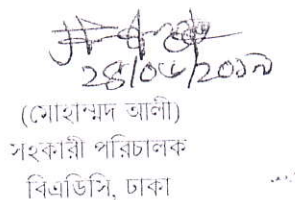 ২৪/০৮/২০১৭
(মোহাম্মদ আলী)
সহকারী পরিচালক
বিএডিসি, ঢাকা